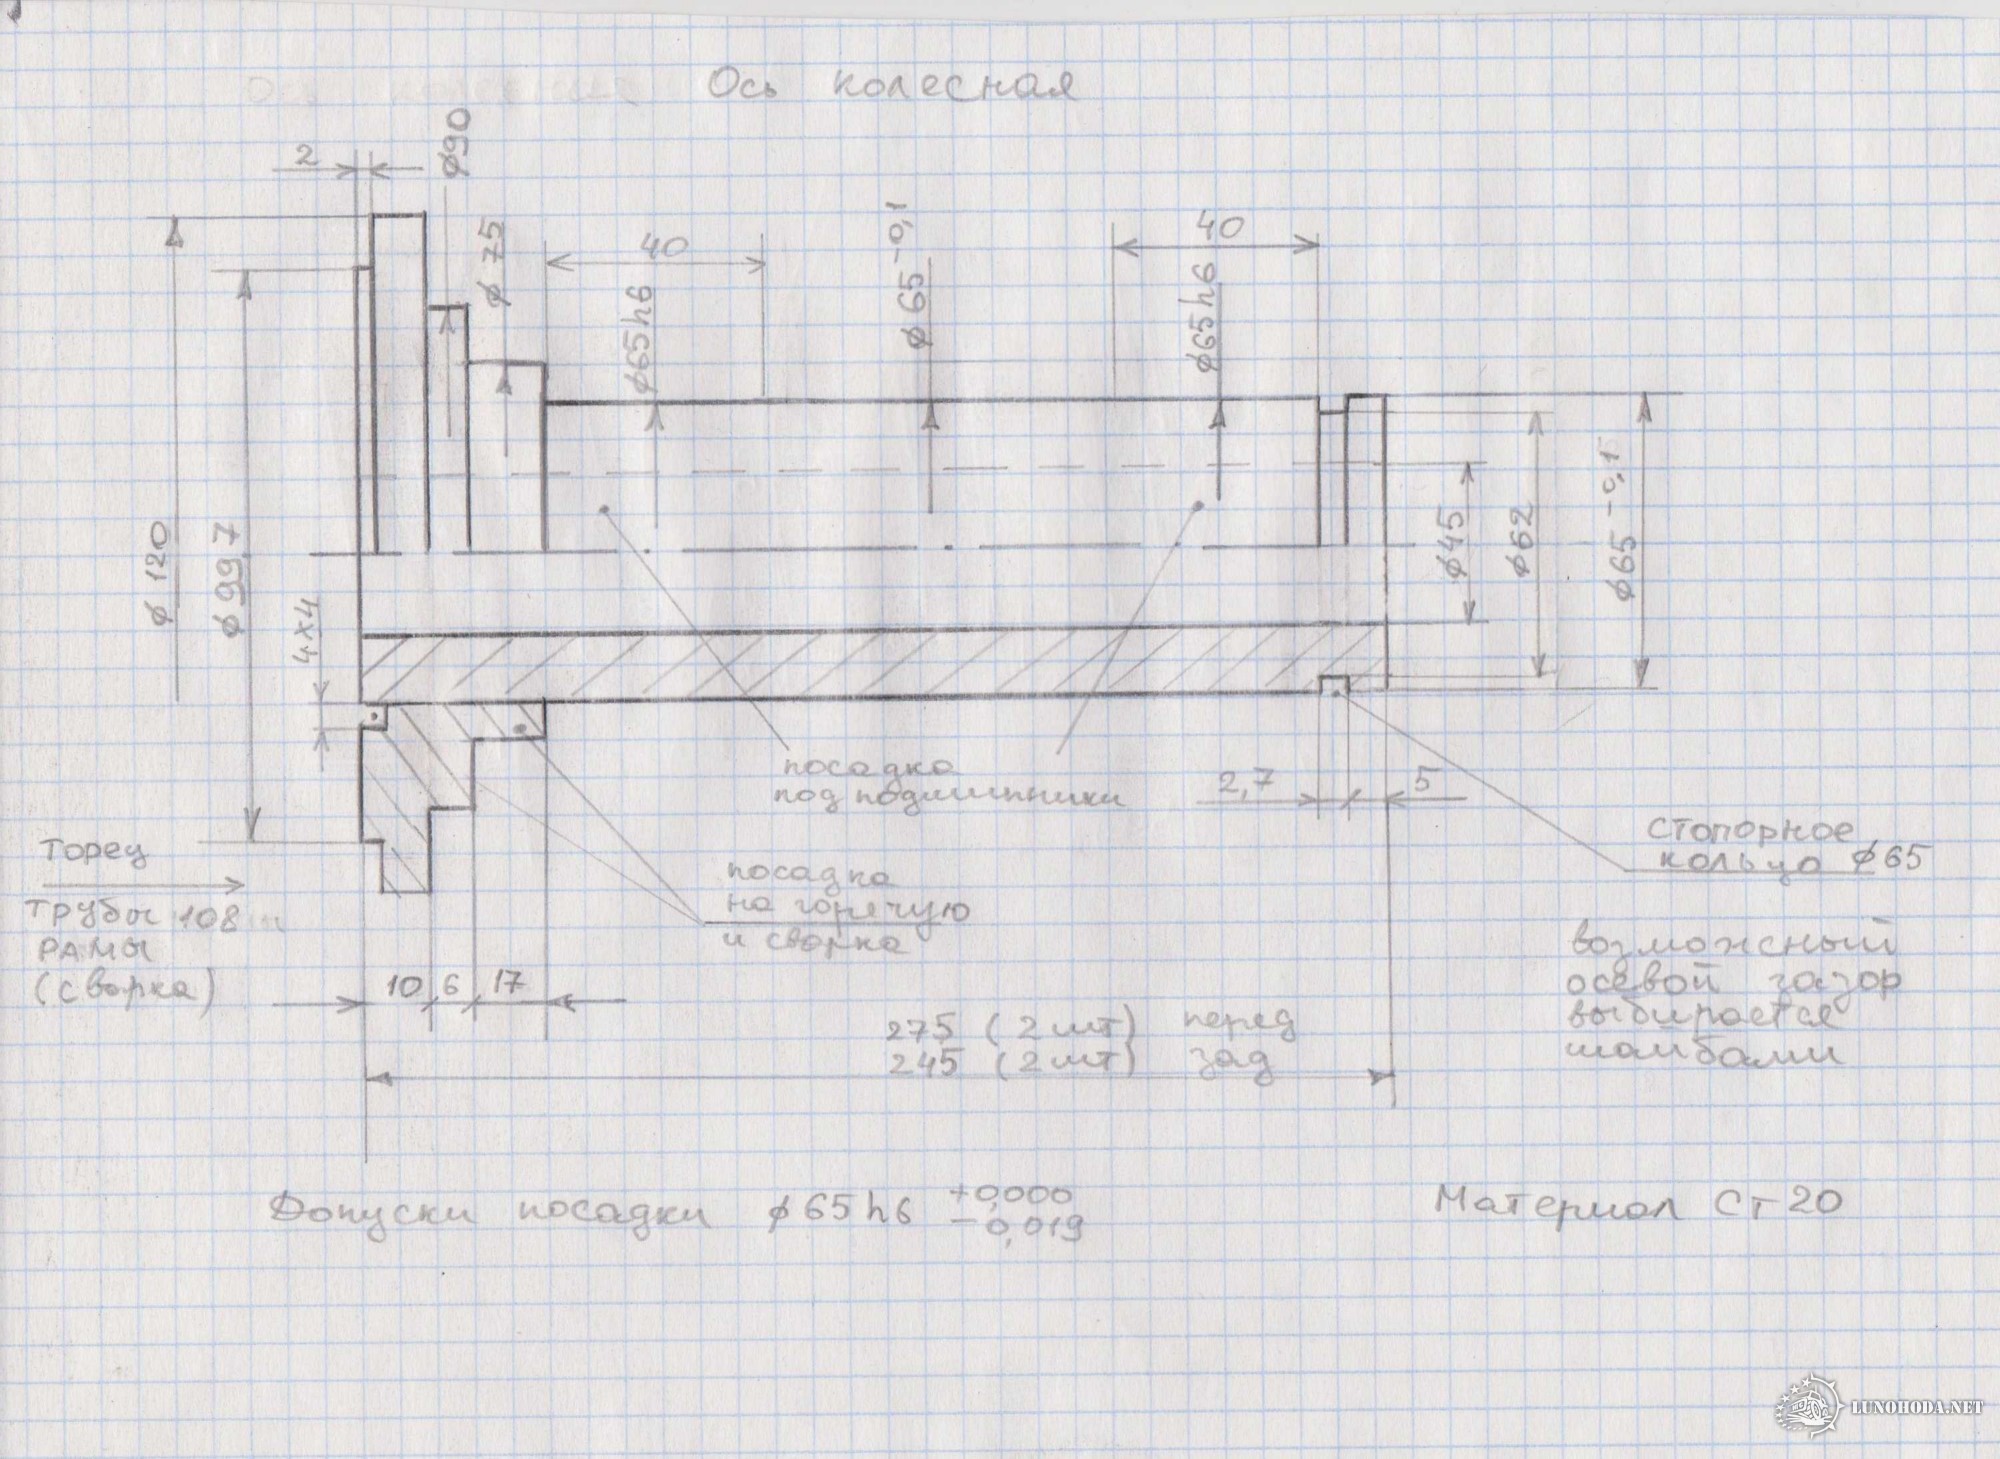 Ось колесная
2
ϕ90
ϕ75
40
ϕ65h6
ϕ65 -0,1
40
ϕ65h6
ϕ120
ϕ99,7
4x4
ϕ45
ϕ62
ϕ65 -0,15
посадка
под подшипники
2,7
5
стопорное
кольцо ϕ65
Торец
трубы 108
рамы
(сварка)
посадка
на горячую
и сварка
возможный
осевой зазор
выбирается
шайбами
10 6 17
275 (2шт) перед
245 (2шт) зад
Допуски посадки ϕ65h6 +0,000
-0,019
Материал Ст20
LUNOHODA.NET